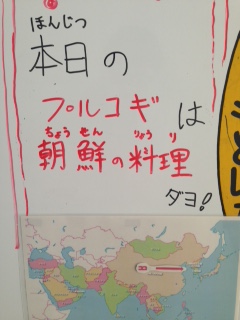 ほんじつ
本日の
プルコギは
ちょうせん りょうり
朝鮮の料理
ダヨ!